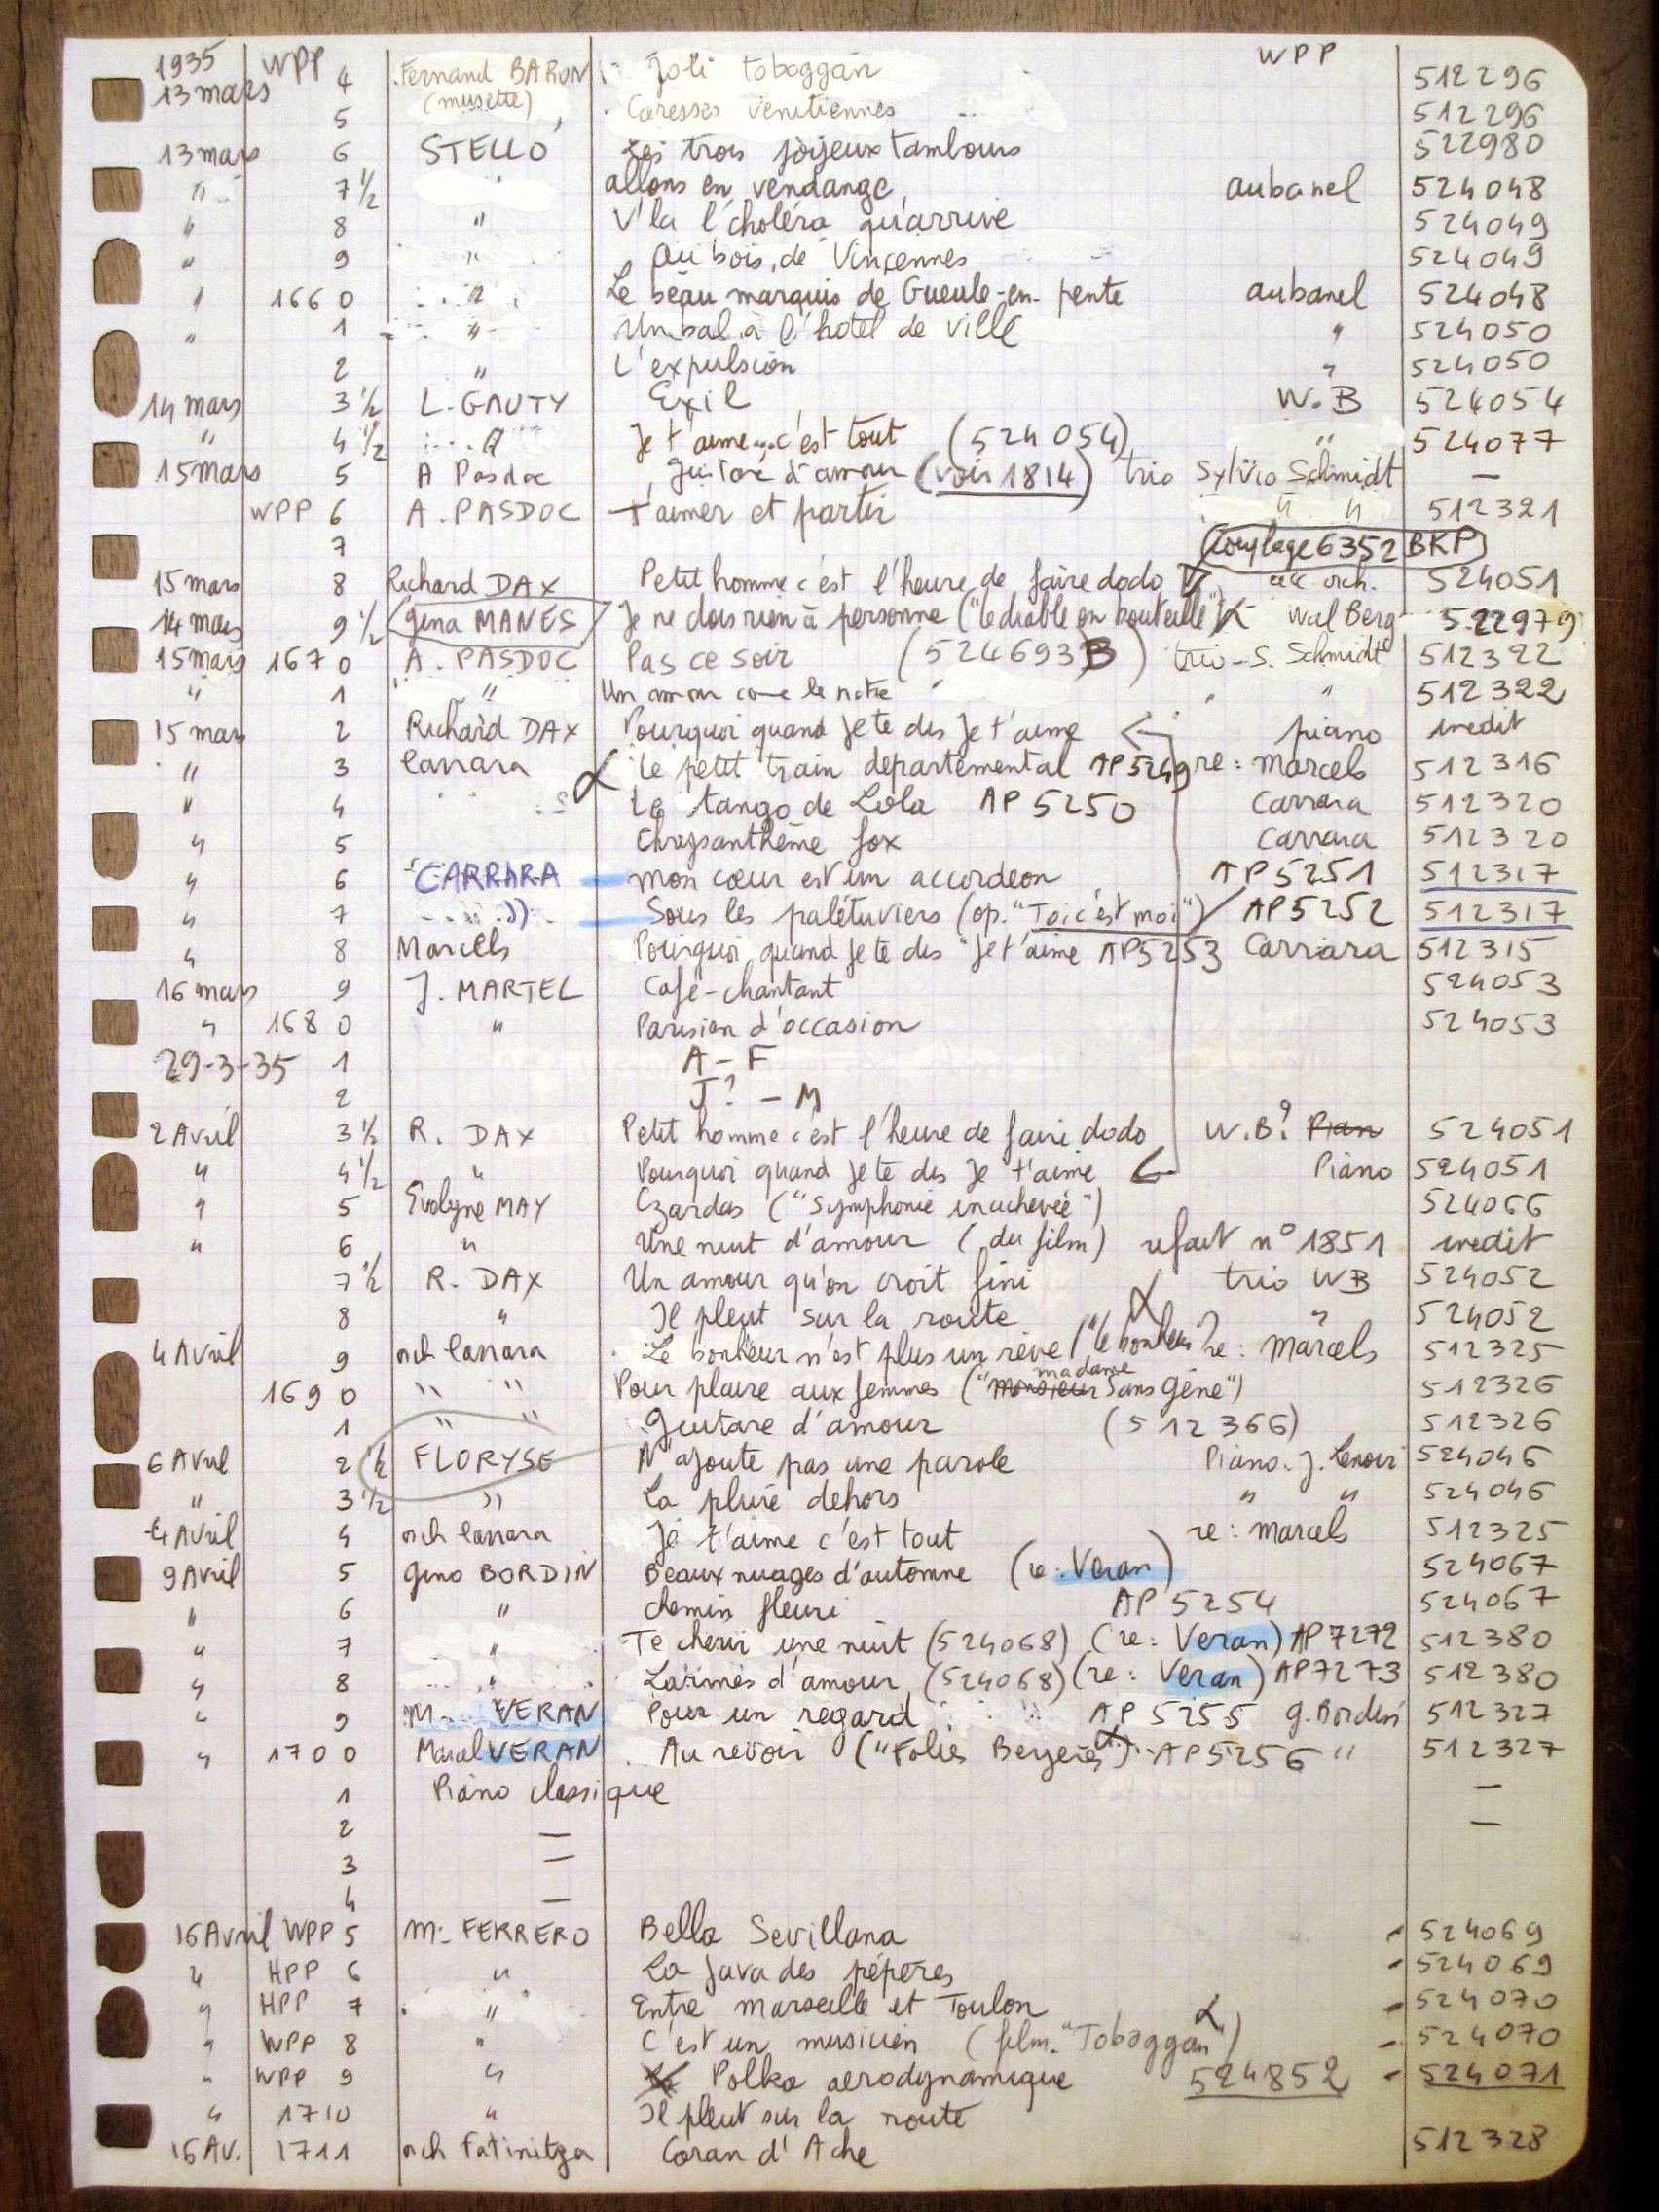 1935 WPP 4 Fernand BARON Joli toboggan WPP 512296
13 mars (musette)
5 Caresses venitiennes 512296
13 mars 6 STELLO Les trois joyeux tambours 522980
" 7 1/2 allons en vendange aubanel 524048
" 8 " V'la l'choléra qu'arrive 524049
" 9 " Au bois de Vincennes 524049
" 1660 " Le beau marquis de Gueule-en-pente aubanel 524048
" 1 " Un bal à l'hotel de ville " 524050
2 " L'expulsion " 524050
14 mars 3 1/2 L. GAUTY Exil W.B 524054
" 4 1/2 " Je t'aime... c'est tout (524054) " 524077
15 mars 5 A Pasdoc guitare d'amour (voir 1814) trio Sylvio Schmidt —
WPP 6 A. PASDOC T'aimer et partir " " 512321
7 Couplage 6352 BKP
15 mars 8 Richard DAX Petit homme c'est l'heure de faire dodo acc orch. 524051
14 mars 9 1/2 Gina MANES Je ne dois rien à personne ("le diable en bouteille") Wal Berg 522979
15 mars 1670 A. PASDOC Pas ce soir (524693B) trio - S. Schmidt 512322
" 1 " Un amour come le notre " " 512322
15 mars 2 Richard DAX Pourquoi quand je te dis je t'aime piano inedit
" 3 Carrara Le petit train departemental AP 5249 re: Marcels 512316
" 4 Le tango de Lola AP 5250 Carrara 512320
" 5 Chrysanthème fox Carrara 512320
" 6 CARRARA mon cœur est un accordeon AP 5251 512317
" 7 " Sous les palétuviers (op. "Toi c'est moi") AP 5252 512317
" 8 Marcels Pourquoi quand je te dis "je t'aime AP5253 Carrara 512315
16 mars 9 J. MARTEL Café-chantant 524053
" 1680 " Parisien d'occasion 524053
29-3-35 1 A - F
2 J? - M
2 Avril 3 1/2 R. DAX Petit homme c'est l'heure de faire dodo W.B? Pian 524051
" 4 1/2 " Pourquoi quand je te dis je t'aime Piano 524051
" 5 Evelyne MAY Czardas ("Symphonie inachevée") 524066
" 6 " Une nuit d'amour (du film) refait n° 1851 inedit
7 1/2 R. DAX Un amour qu'on croit fini trio WB 524052
8 " Il pleut sur la route " 524052
4 Avril 9 orch Carrara Le bonheur n'est plus un rêve ("le bonheur") re: Marcels 512325
madame
1690 " " Pour plaire aux femmes ("Monsieur Sans gène") 512326
1 " " Guitare d'amour (512366) 512326
6 Avril 2 1/2 FLORYSE N'ajoute pas une parole Piano. J. Lenoir 524046
" 3 1/2 " La pluie dehors " " 524046
4 Avril 4 orch Carrara Je t'aime c'est tout re: Marcels 512325
9 Avril 5 Gino BORDIN Beaux nuages d'automne (re: Veran) 524067
" 6 " chemin fleuri AP 5254 524067
" 7 " Te cherir une nuit (524068) (re: Veran) AP 7272 512380
" 8 " Larmes d'amour (524068) (re: Veran) AP7273 512380
" 9 M. VERAN Pour un regard AP 5255 g. Bordin 512327
" 1700 Marcel VERAN Au revoir ("Folies Bergères") AP5256 " 512327
1 Piano classique —
2 — —
3 —
4 —
16 Avril WPP 5 M. FERRERO Bella Sevillana - 524069
" HPP 6 " La Java des pépères - 524069
" HPP 7 " Entre marseille et Toulon - 524070
" WPP 8 " C'est un musicien (film. "Toboggan") - 524070
" WPP 9 " Polka aerodynamique 524852 - 524071
" 1710 " Il pleut sur la route
16 Av. 1711 orch Fatinitza Caran d'Ache 512328